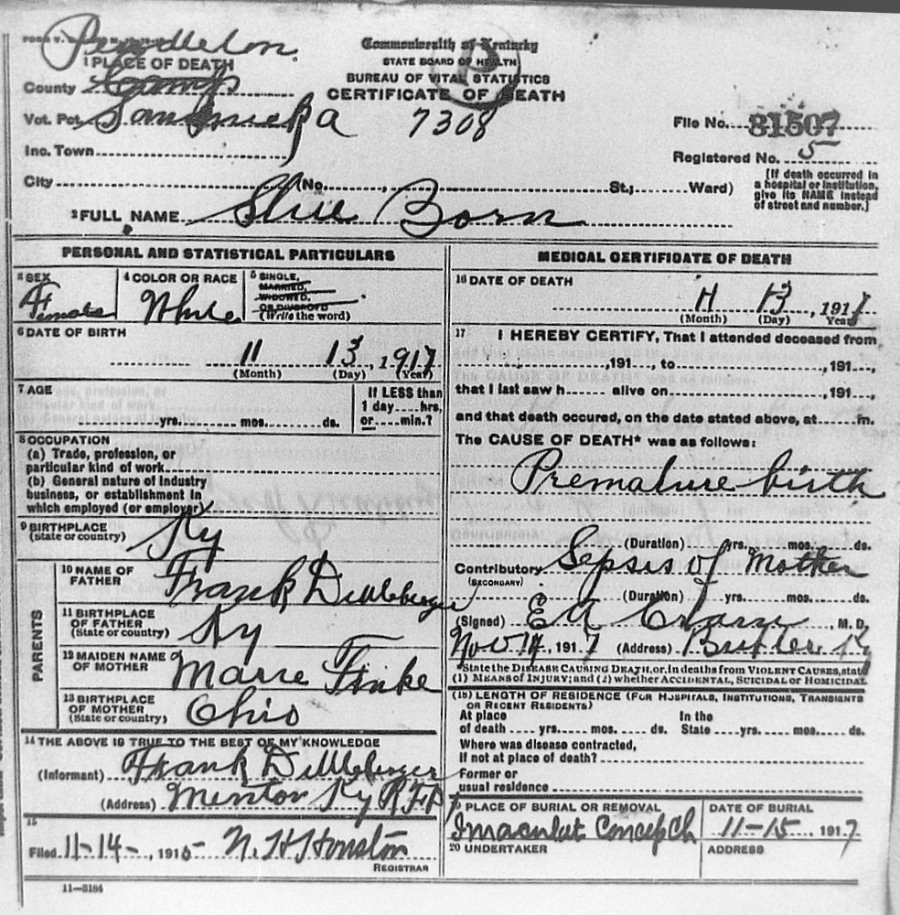 Pendleton
Commonwealth of Kentucky
STATE BOARD OF HEALTH
BUREAU OF VITAL STATISTICS
CERTIFICATE OF DEATH
1 PLACE OF DEATH
County Camp
Vot. Pct. 7308
File No. 81507
Inc. Town
Registered No. 5
City (No. St.; Ward)
[If death occurred in
a hospital or institution,
give its NAME instead
of street and number.]
2 FULL NAME Still Born
PERSONAL AND STATISTICAL PARTICULARS
3 SEX Female
4 COLOR OR RACE White
5 SINGLE, MARRIED, WIDOWED, OR DIVORCED (Write the word)
6 DATE OF BIRTH
11 13, 1917
(Month) (Day) (Year)
7 AGE
yrs. mos. ds.
If LESS than
1 day hrs,
or min.?
8 OCCUPATION
(a) Trade, profession, or
particular kind of work
(b) General nature of Industry
business, or establishment in
which employed (or employer)
9 BIRTHPLACE
(State or country) Ky
PARENTS
10 NAME OF
FATHER Frank
11 BIRTHPLACE
OF FATHER
(State or country) Ky
12 MAIDEN NAME
OF MOTHER Marie
13 BIRTHPLACE
OF MOTHER
(State or country) Ohio
14 THE ABOVE IS TRUE TO THE BEST OF MY KNOWLEDGE
(Informant) Frank
(Address) Mentor Ky R.F.D. 1
15
Filed 11-14-, 1915 N. H. Houston
REGISTRAR
11-3184
MEDICAL CERTIFICATE OF DEATH
16 DATE OF DEATH
11 13, 1917
(Month) (Day) Year
17 I HEREBY CERTIFY, That I attended deceased from
, 191 , to , 191 ,
that I last saw h alive on , 191 ,
and that death occured, on the date stated above, at m.
The CAUSE OF DEATH* was as follows:
Premature birth
(Duration) yrs. mos. ds.
Contributory Sepsis of Mother
(SECONDARY)
(Duration) yrs. mos. ds.
(Signed) M. D.
Nov 14, 1917 (Address) Butler Ky
*State the DISEASE CAUSING DEATH, or, in deaths from VIOLENT CAUSES, state
(1) MEANS of INJURY; and (2) whether ACCIDENTAL, SUICIDAL or HOMICIDAL
(18) LENGTH OF RESIDENCE (FOR HOSPITALS, INSTITUTIONS, TRANSIENTS
OR RECENT RESIDENTS)
At place In the
of death yrs. mos. ds. State yrs. mos. ds.
Where was disease contracted,
if not at place of death?
Former or
usual residence
19 PLACE OF BURIAL OR REMOVAL
Imaculat Concep Ch
DATE OF BURIAL
11-15 1917
20 UNDERTAKER
ADDRESS